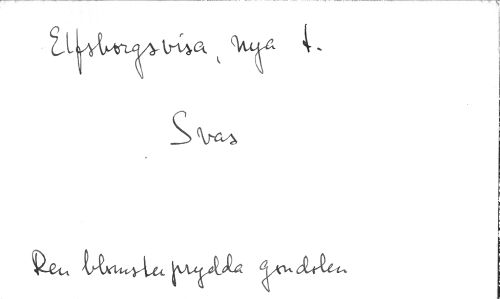 Elfsborgsvisa, nya t.
Svas
Den blomsterprydda gondolen